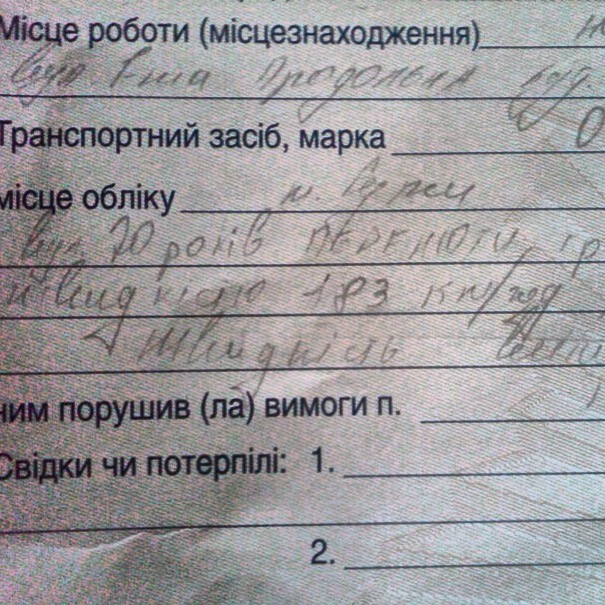 Місце роботи (місцезнаходження)
вул. 1-ша Продольна буд.
Транспортний засіб, марка
місце обліку м.
вул. 70 років
швидкістю 183 км/год
швидкість
ним порушив (ла) вимоги п.
Свідки чи потерпілі: 1.
2.